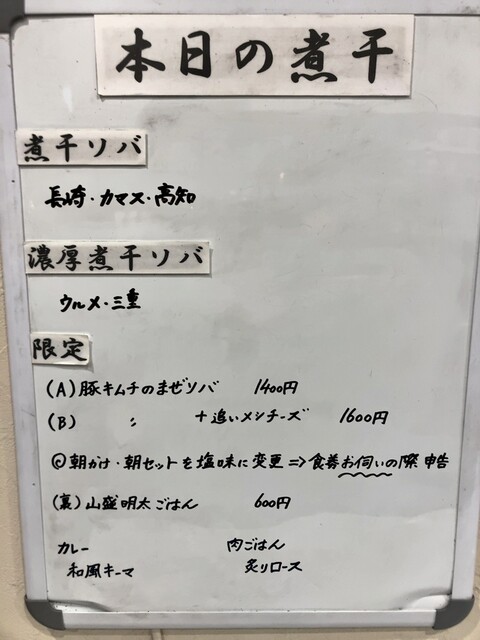 本日の煮干
煮干ソバ
長崎・カマス・高知
濃厚煮干ソバ
ウルメ・三重
限定
(A) 豚キムチのまぜソバ 1400円
(B) 〃 +追いメシチーズ 1600円
◎朝かけ・朝セットを塩味に変更⇒食券お伺いの際申告
(裏) 山盛明太ごはん 600円
カレー 肉ごはん
和風キーマ 炙りロース